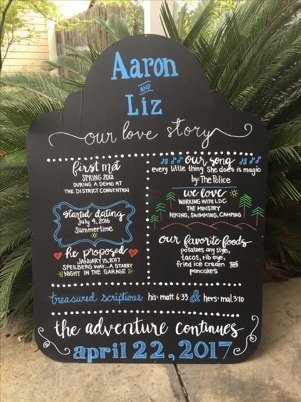 Aaron
AND
Liz
our love story
first met
SPRING 2012
DURING A DEMO AT
THE DISTRICT CONVENTION
started dating
July 4, 2016
Summertime
he proposed
JANUARY 15, 2017
SPEILBERG WAY...A STARRY
NIGHT IN THE GARAGE
our song
every little thing she does is magic
by: The Police
we love
WORKING WITH LDC
THE MINISTRY
HIKING, SWIMMING, CAMPING
our favorite foods
potatoes any style,
tacos, rib eye,
fried ice cream
pancakes
treasured scriptures his: matt 6:33 & hers: mal. 3:10
the adventure continues
april 22, 2017